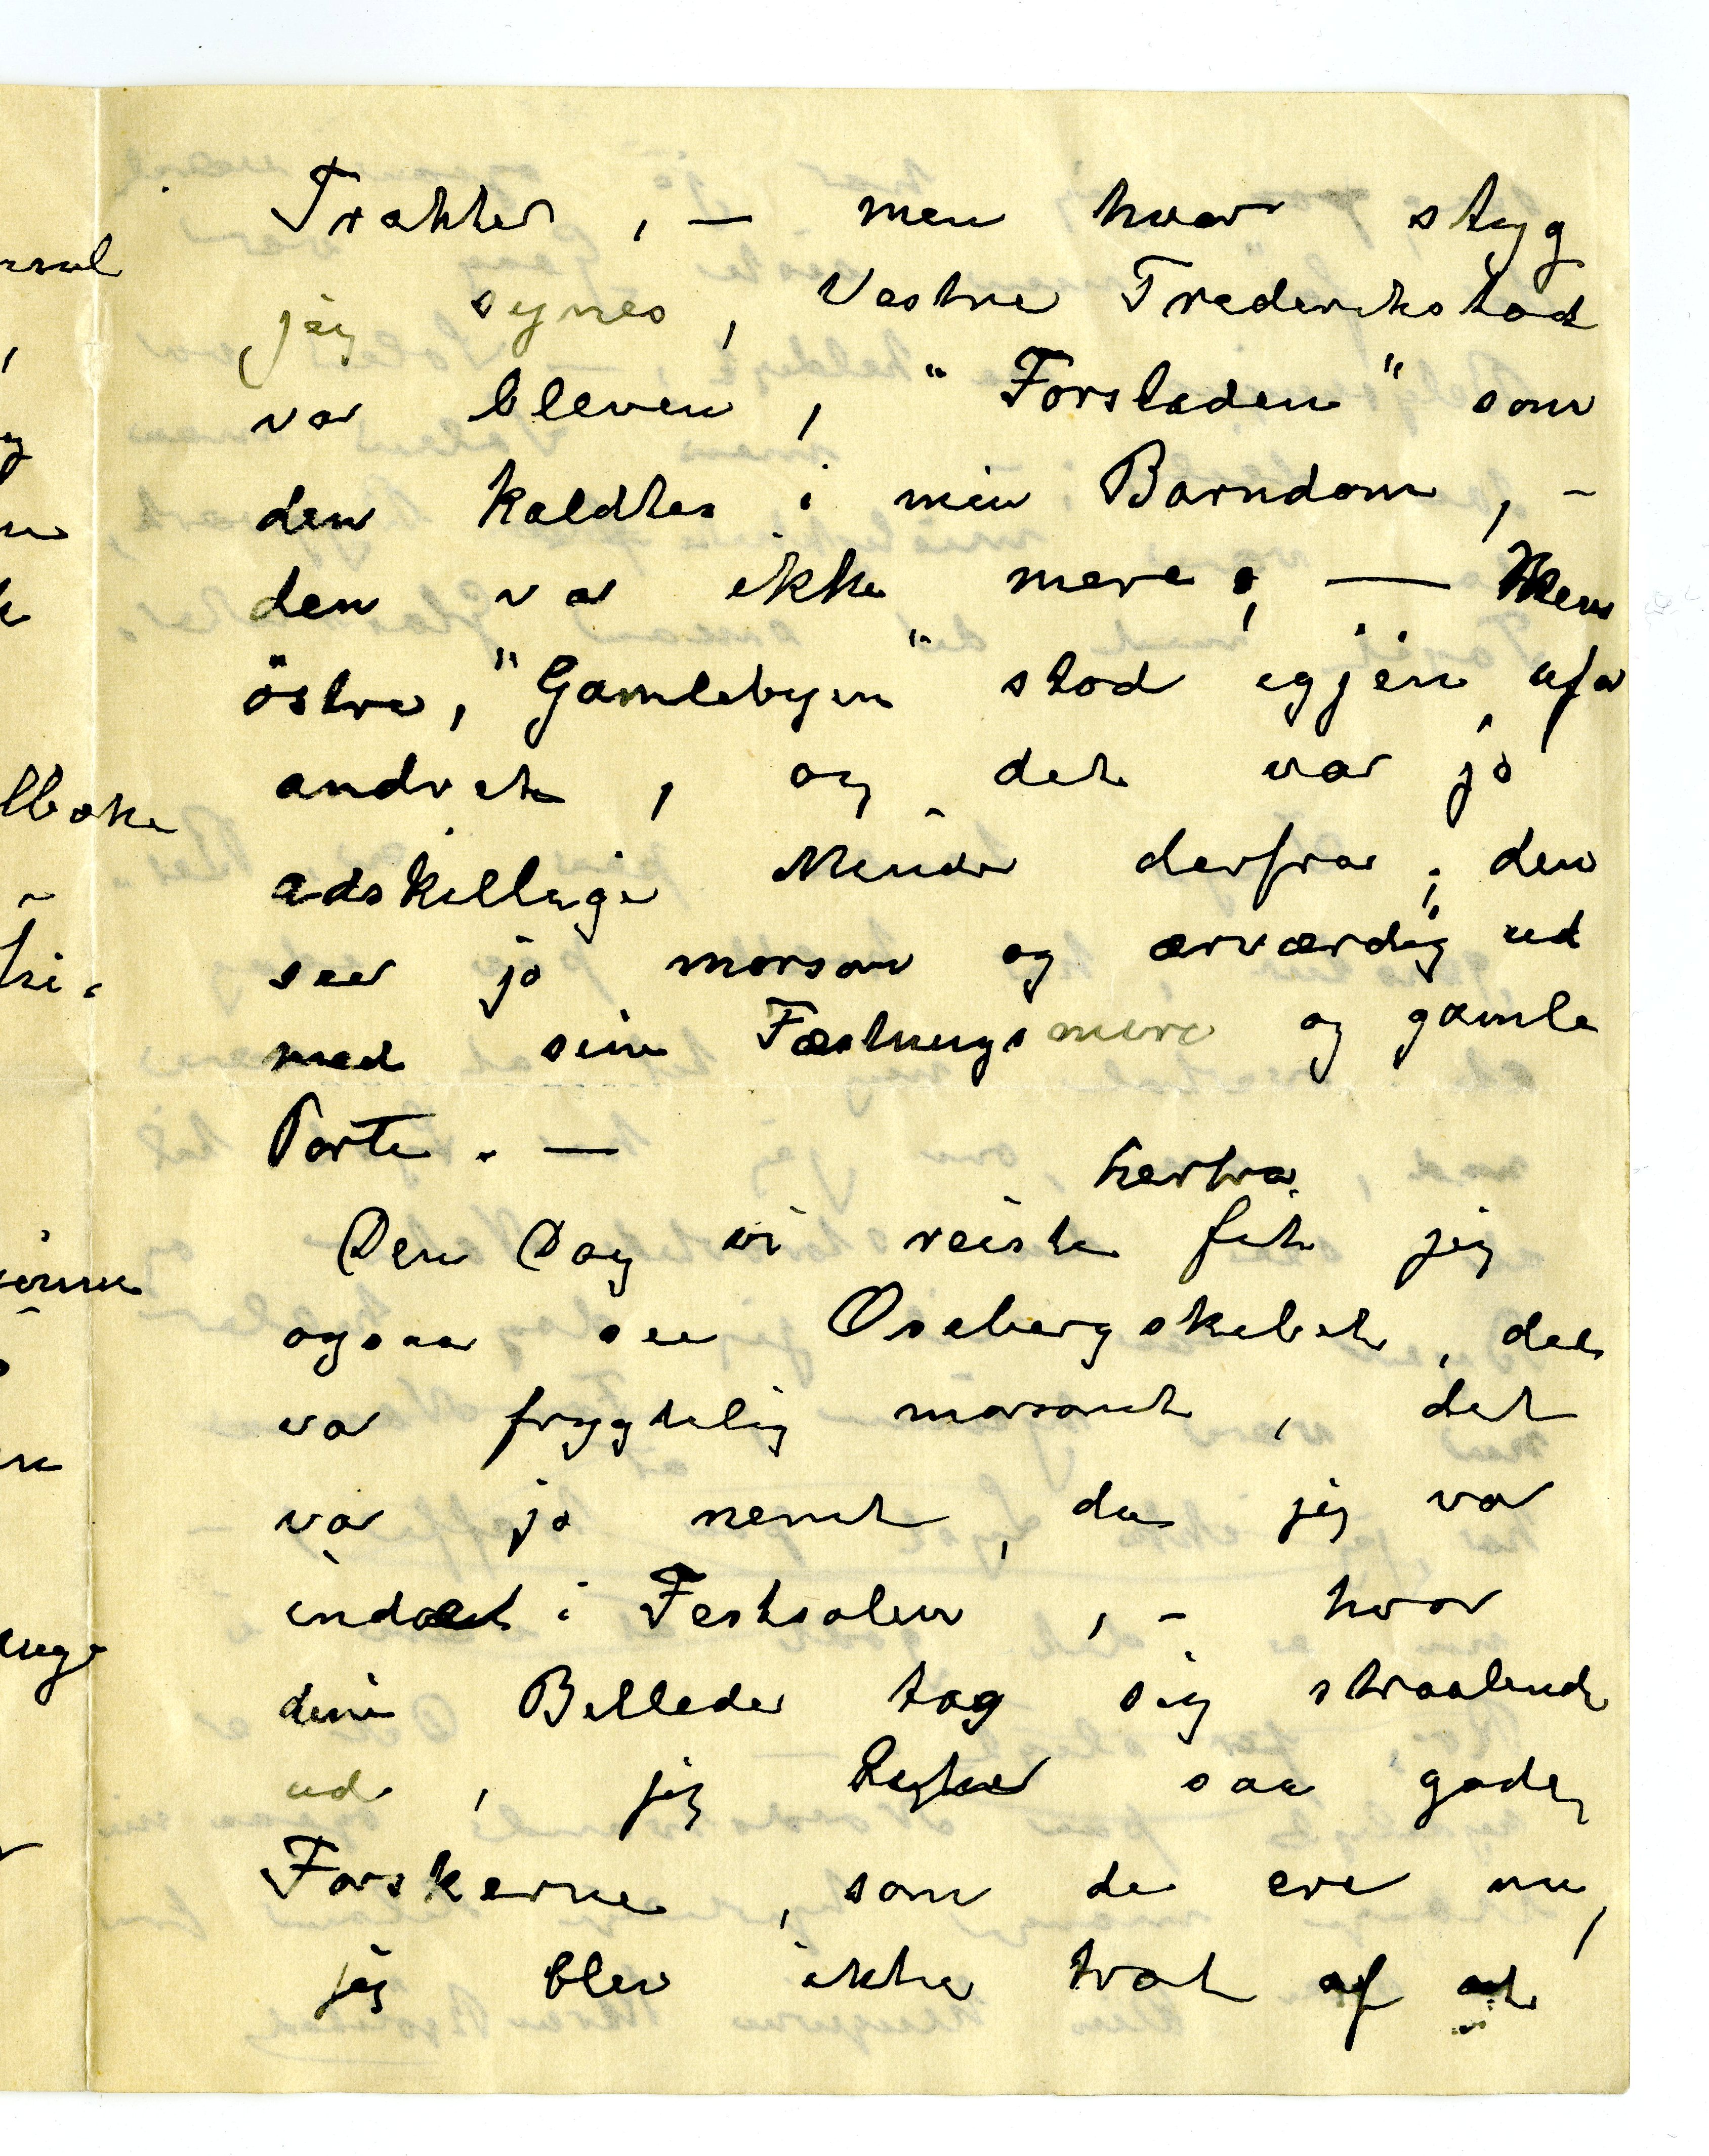 Trakter, — men hvor styg
jeg synes, Vestre Frederikstad
var bleven, "Forstaden" som
den kaldtes i min Barndom, -
den var ikke mere, — Men
östre, "Gamlebyen" stod igjen ufor
andret, og det var jo
adskillige Minder derfra; den
seer jo morsom og ærværdig ud
med sine Fæstningsmure og gamle
Porte. —
herfra
Den Dag vi reiste fik jeg
ogsaa see Osebergskibet, det
var frygtelig morsomt, det
var jo nemt, da jeg var
indom i Festsalen, - hvor
dine Billeder tog sig straalende
ud, jeg saa gode,
Forskerne, som de ere nu,
jeg blev ikke træt af at